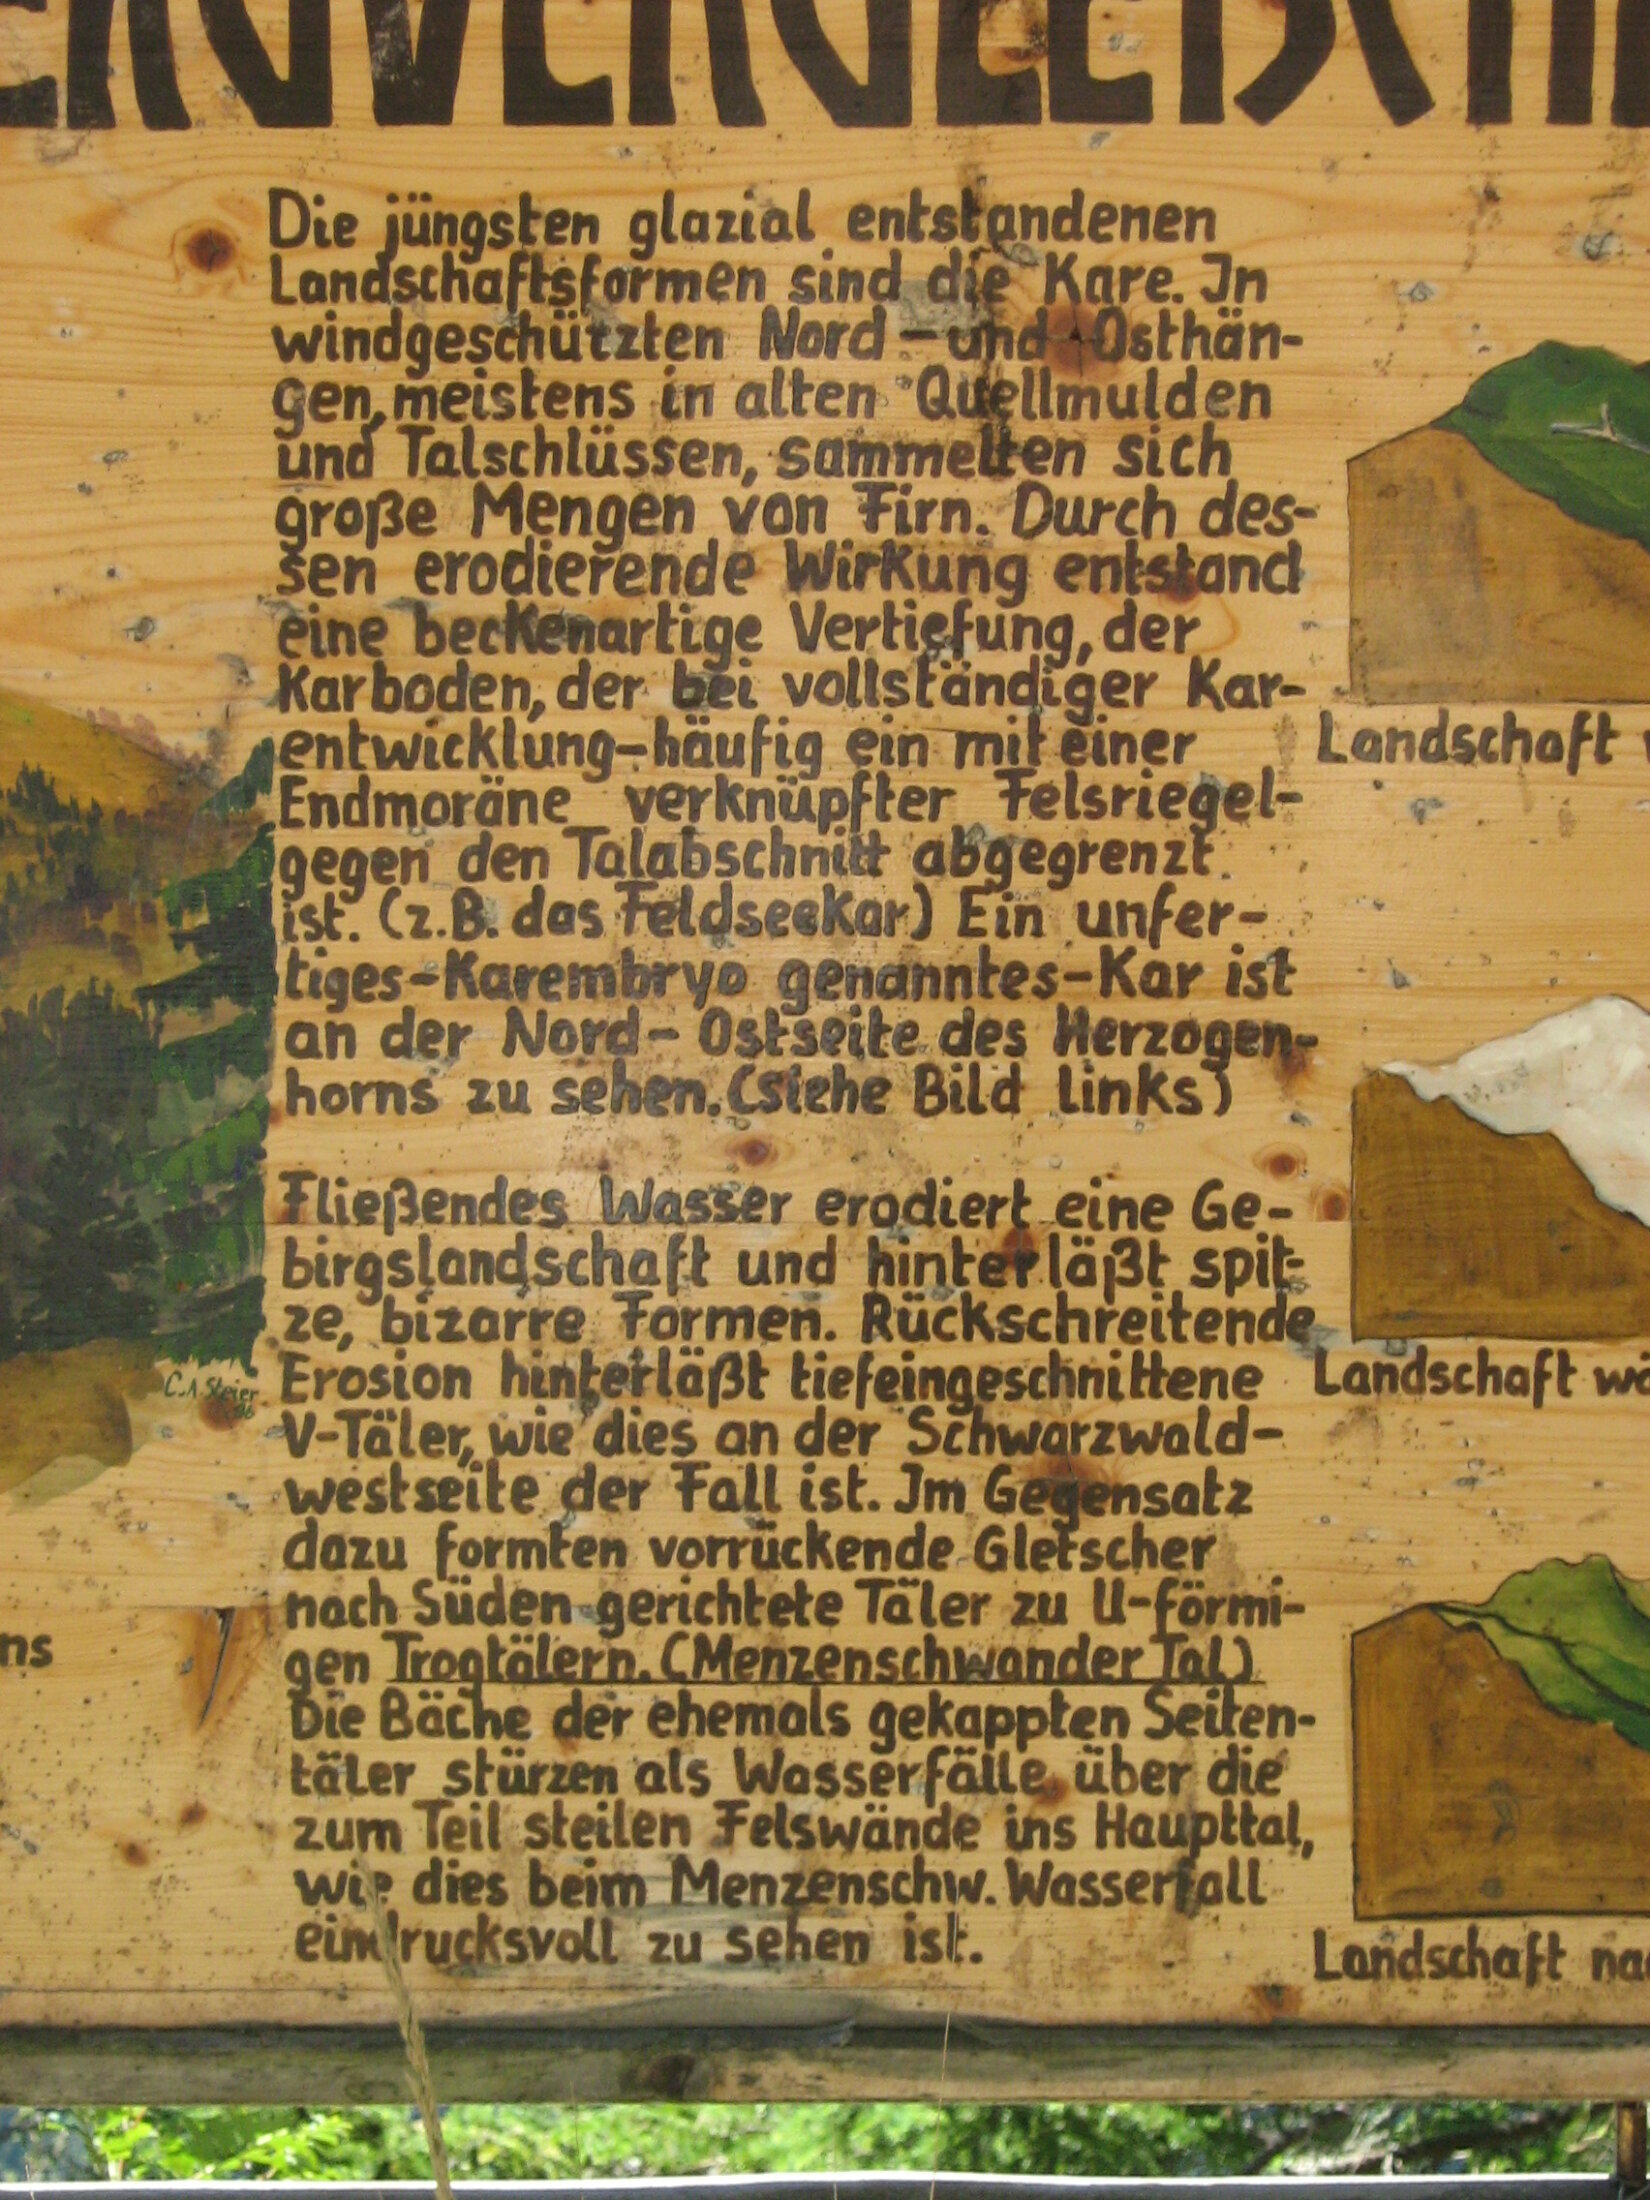 Die jüngsten glazial entstandenen
Landschaftsformen sind die Kare. In
windgeschützten Nord- und Osthän-
gen, meistens in alten Quellmulden
und Talschlüssen, sammelten sich
große Mengen von Firn. Durch des-
sen erodierende Wirkung entstand
eine beckenartige Vertiefung, der
Karboden, der bei vollständiger Kar-
entwicklung-häufig ein mit einer
Endmoräne verknüpfter Felsriegel-
gegen den Talabschnitt abgegrenzt
ist. (z.B. das Feldseekar) Ein unfer-
tiges-Karembryo genanntes-Kar ist
an der Nord- Ostseite des Herzogen-
horns zu sehen. (Siehe Bild links)
Fließendes Wasser erodiert eine Ge-
birgslandschaft und hinterläßt spit-
ze, bizarre Formen. Rückschreitende
Erosion hinterläßt tiefeingeschnittene
V-Täler, wie dies an der Schwarzwald-
westseite der Fall ist. Im Gegensatz
dazu formten vorrückende Gletscher
nach Süden gerichtete Täler zu U-förmi-
gen Trogtälern. (Menzenschwander Tal)
Die Bäche der ehemals gekappten Seiten-
täler stürzen als Wasserfälle über die
zum Teil steilen Felswände ins Haupttal,
wie dies beim Menzenschw. Wasserfall
eindrucksvoll zu sehen ist.
C.A. Steier
ns
Landschaft
Landschaft
Landschaft